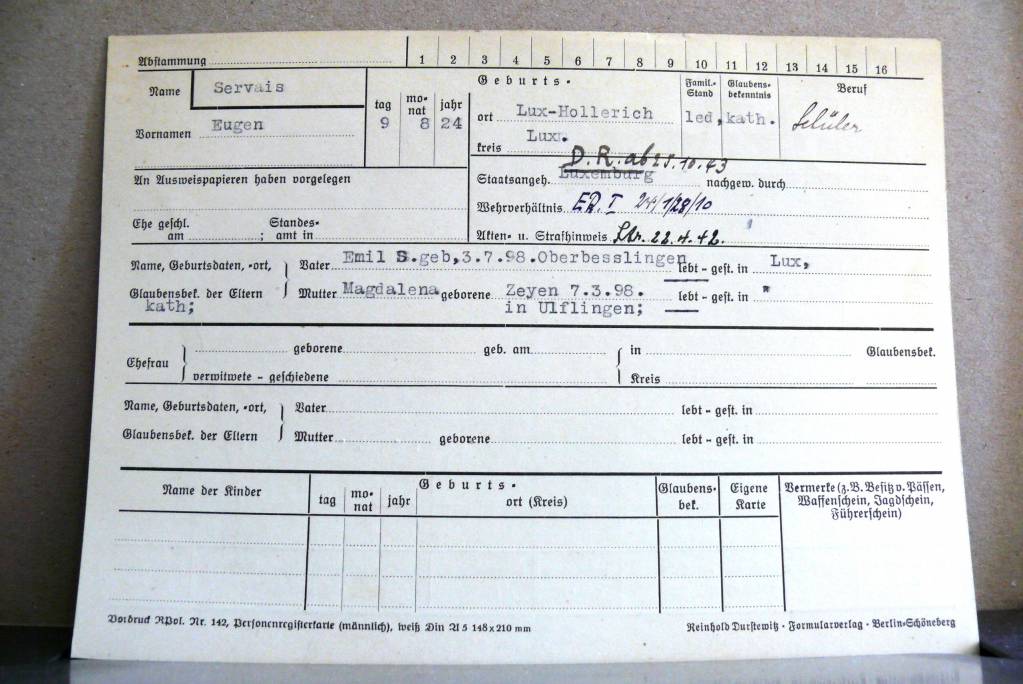 Abstammung 1 2 3 4 5 6 7 8 9 10 11 12 13 14 15 16
Name Servais
Vornamen Eugen
tag monat jahr
9 8 24
Geburts-
ort Lux-Hollerich
kreis Lux.
Famil.-Stand
led,
Glaubensbekenntnis
kath.
Beruf
Schüler
An Ausweispapieren haben vorgelegen
D. R. ab 25.10.43
Staatsangeh. Luxemburg nachgew. durch
Wehrverhältnis ER. I 24/1/28/10
Ehe geschl. am ; Standesamt in
Akten- u. Strafhinweis Str. 22.4.42.
Name, Geburtsdaten, -ort, Vater Emil S.geb,3.7.98.Oberbesslingen lebt - gest. in Lux,
Glaubensbek. der Eltern Mutter Magdalena geborene Zeyen 7.3.98. lebt - gest. in "
kath; in Ulflingen;
Ehefrau geborene geb. am in Glaubensbek.
verwitwete - geschiedene Kreis
Name, Geburtsdaten, -ort, Vater lebt - gest. in
Glaubensbek. der Eltern Mutter geborene lebt - gest. in
Name der Kinder
tag monat jahr
Geburts-
ort (Kreis)
Glaubensbek.
Eigene Karte
Vermerke (z.B. Besitz v. Pässen,
Waffenschein, Jagdschein,
Führerschein)
Vordruck RPol. Nr. 142, Personenregisterkarte (männlich), weiß Din A 5 148 x 210 mm
Reinhold Durstewitz · Formularverlag · Berlin-Schöneberg